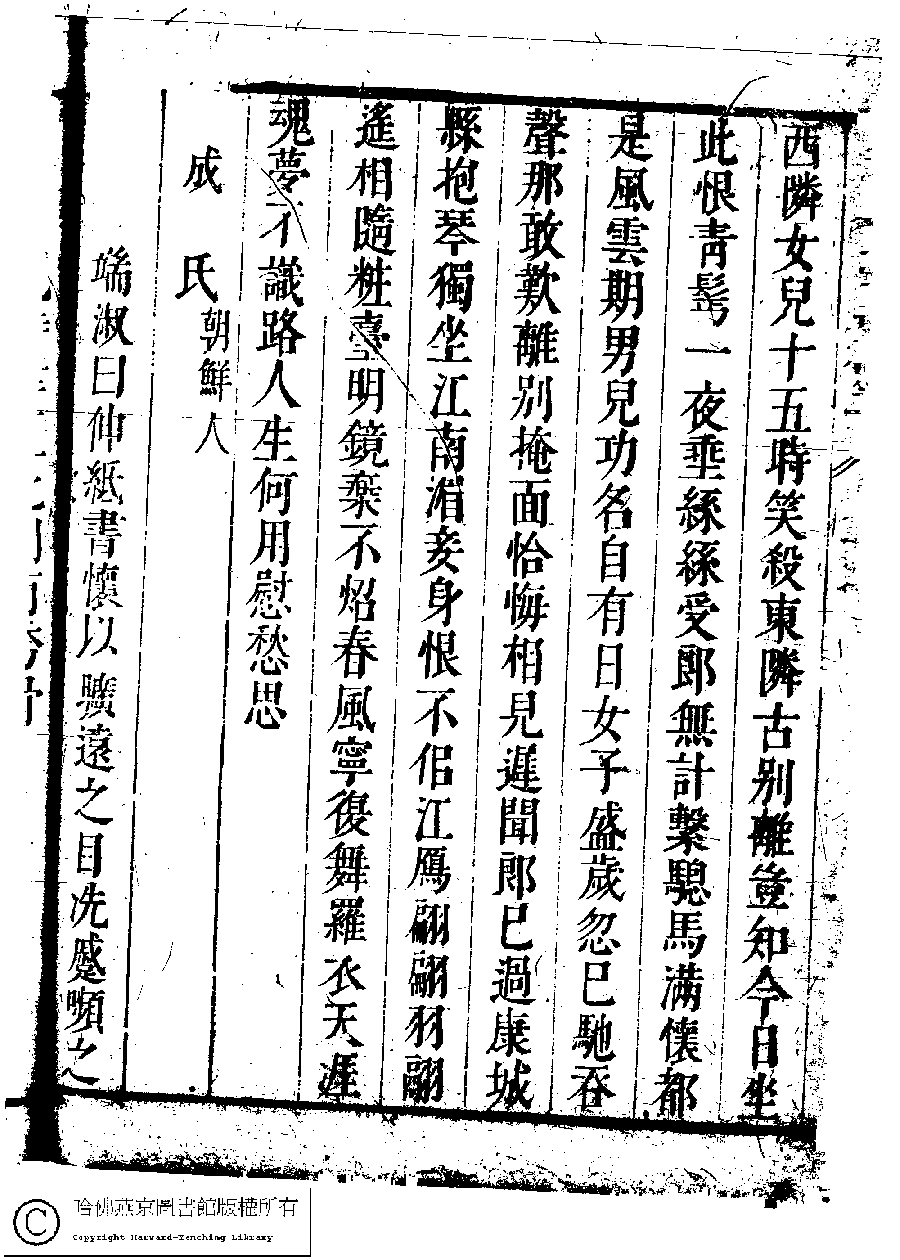 西隣女兒十五時笑殺東隣古别離豈知今日坐
此恨青髩一夜垂絲絲受郎無計繫驄馬滿懷都
是風雲期男兒功名自有日女子盛歲忽已馳吞
聲那敢歎離别掩面恰悔相見遲聞郎已過康城
縣抱琴獨坐江南湄妾身恨不侣江鴈翩翩羽翮
遙相隨粧臺明鏡棄不炤春風寧復舞羅衣天涯
魂夢不識路人生何用慰愁思
成氏朝鮮人
端淑曰伸紙書懷以曠遠之目洗蹙嚬之
哈佛燕京圖書館版權所有
Copyright Harvard-Yenching Library